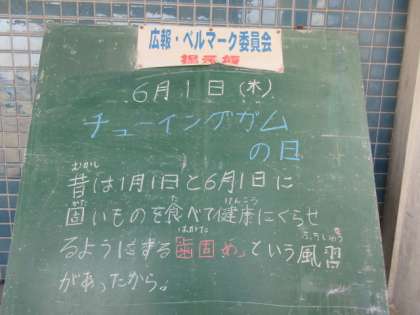 広報・ベルマーク委員会
掲示板
6月1日(木)
チューイングガム
の日
むかし
昔は1月1日と6月1日に
かた た けんこう
固いものを食べて健康にくらせ
はがため ふうしゅう
るようにする「歯固め」という風習
があったから。